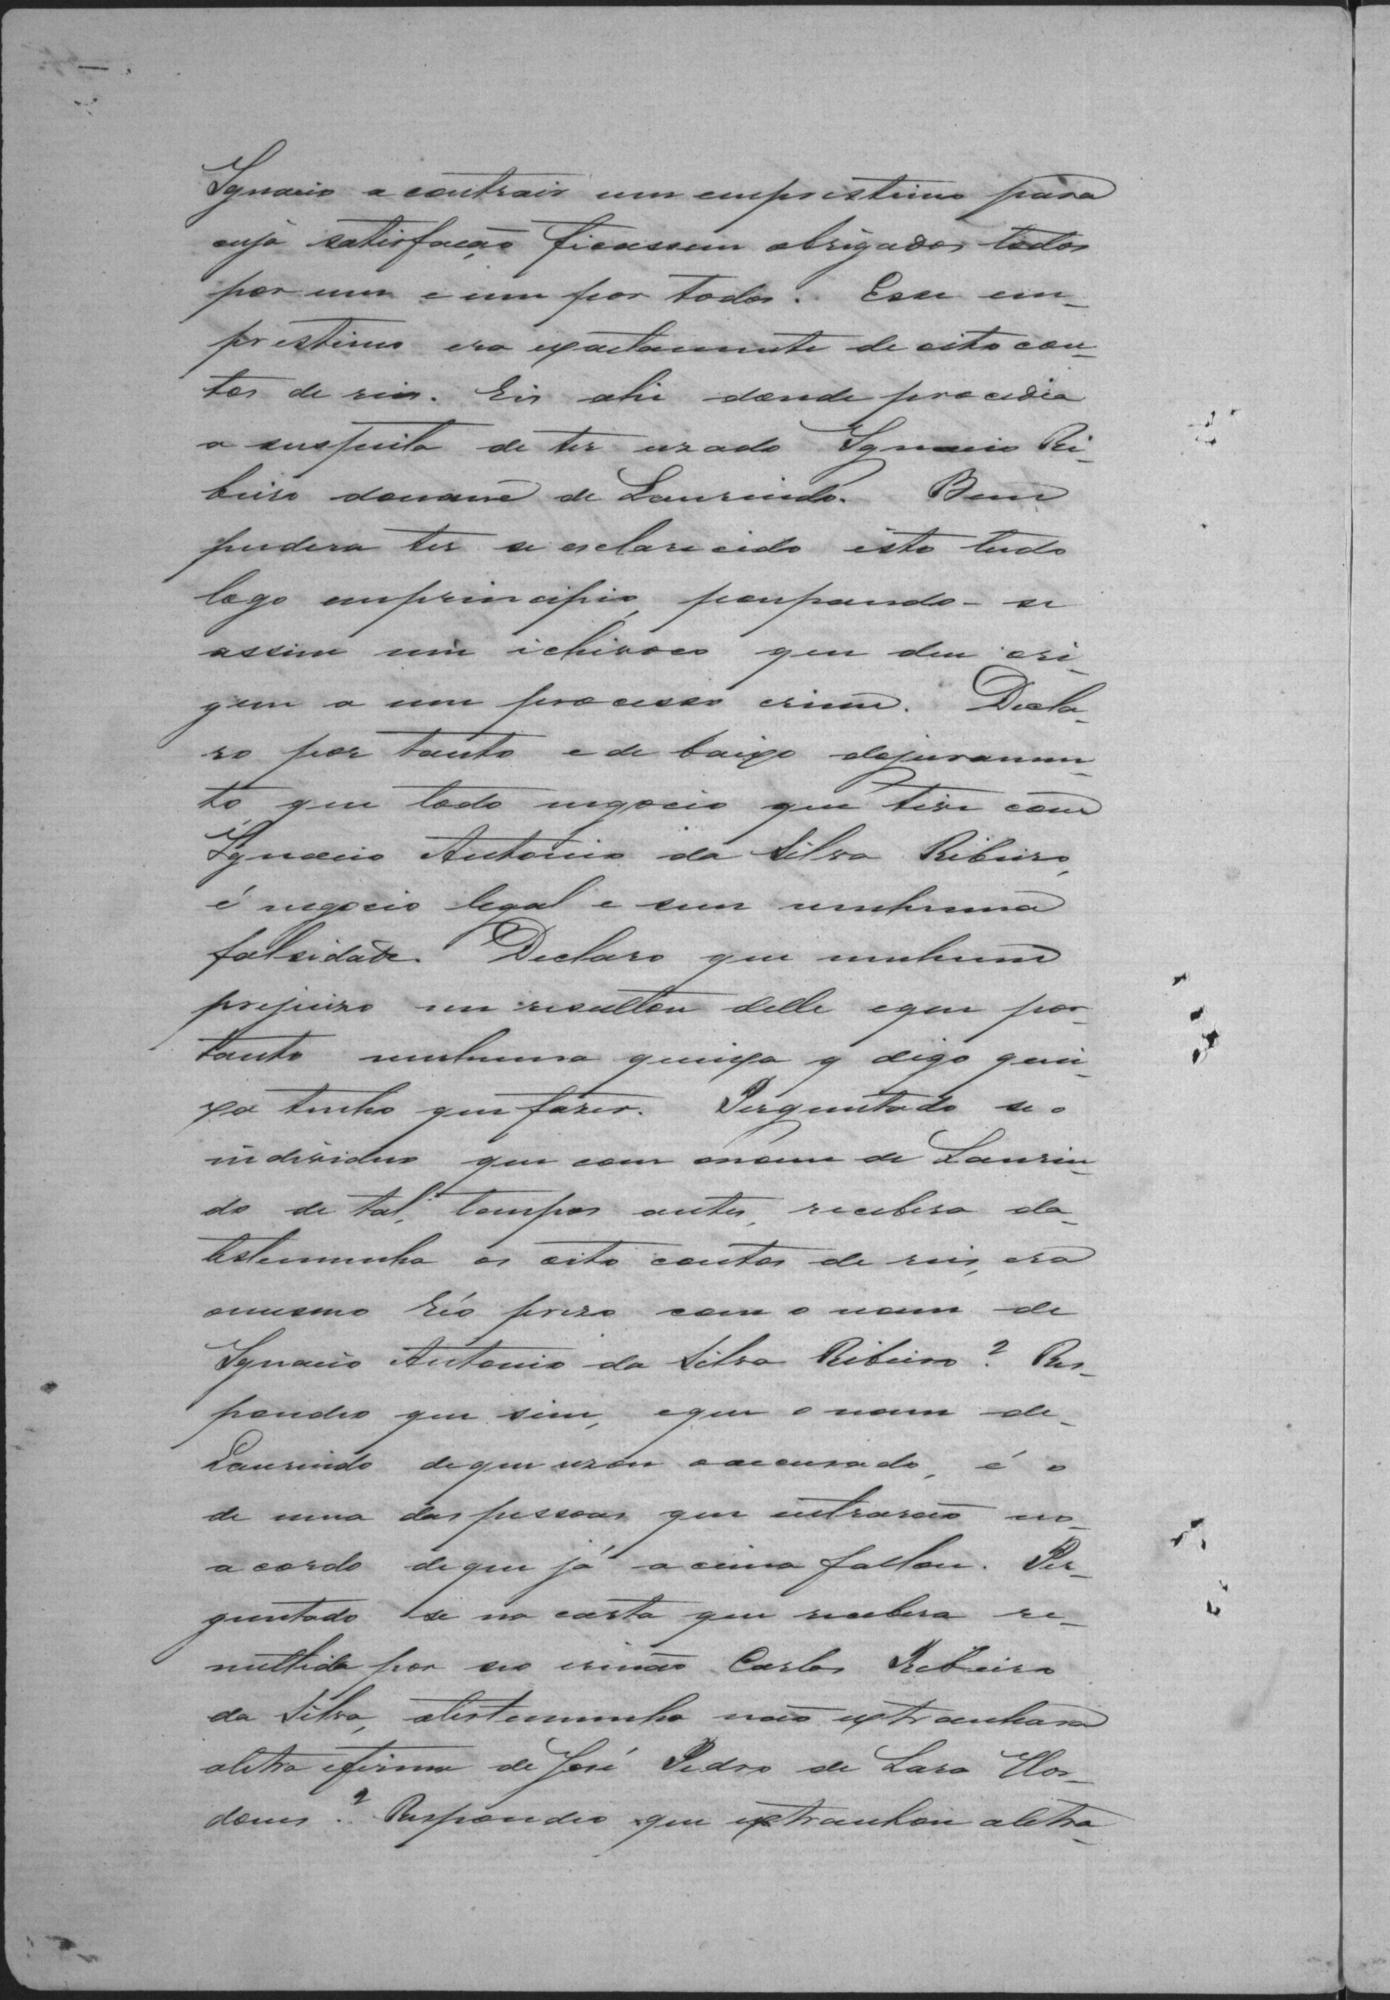 Ignacio a contrair um emprestimo para
cuja satisfação ficassem obrigados todos
por um e um por todos. Esse em-
prestimo era exactamente de oito con-
tos de reis. Eis ahi donde procedia
a suspeita de ter uzado Ignacio Ri-
beiro do nome de Laurindo. Bem
pudera ter se esclarecido isto tudo
logo em principio, poupando-se
assim um que deu ori-
gem a um processo crime. Decla-
ro por tanto e de baixo dejuramen-
to que todo negocio que tive com
Ignacio Antonio da Silva Ribeiro,
é negocio legal e sem nenhuma
falsidade. Declaro que nenhum
prejuizo me resultou delle eque por-
tanto nenhuma queixa q digo quei-
xa tenho que fazer. Perguntado se o
individuo que com onome de Laurin-
do de tal, tempos antes, recebera da
testemunha os oito contos de reis, era
omesmo Réo prezo com o nome de
Ignacio Antonio da Silva Ribeiro? Res-
pondeo que sim, eque o nome de
Laurindo deque uzou oaccusado, é o
de uma das pessoas que entrarão no
acordo deque já acima fallou. Per-
guntado se na carta que recebera re-
mettida por seo irmão Carlos Ribeiro
da Silva, atestemunha não extranhara
aletra efirma de José Pedro de Lara
? Respondeo que extranhou aletra